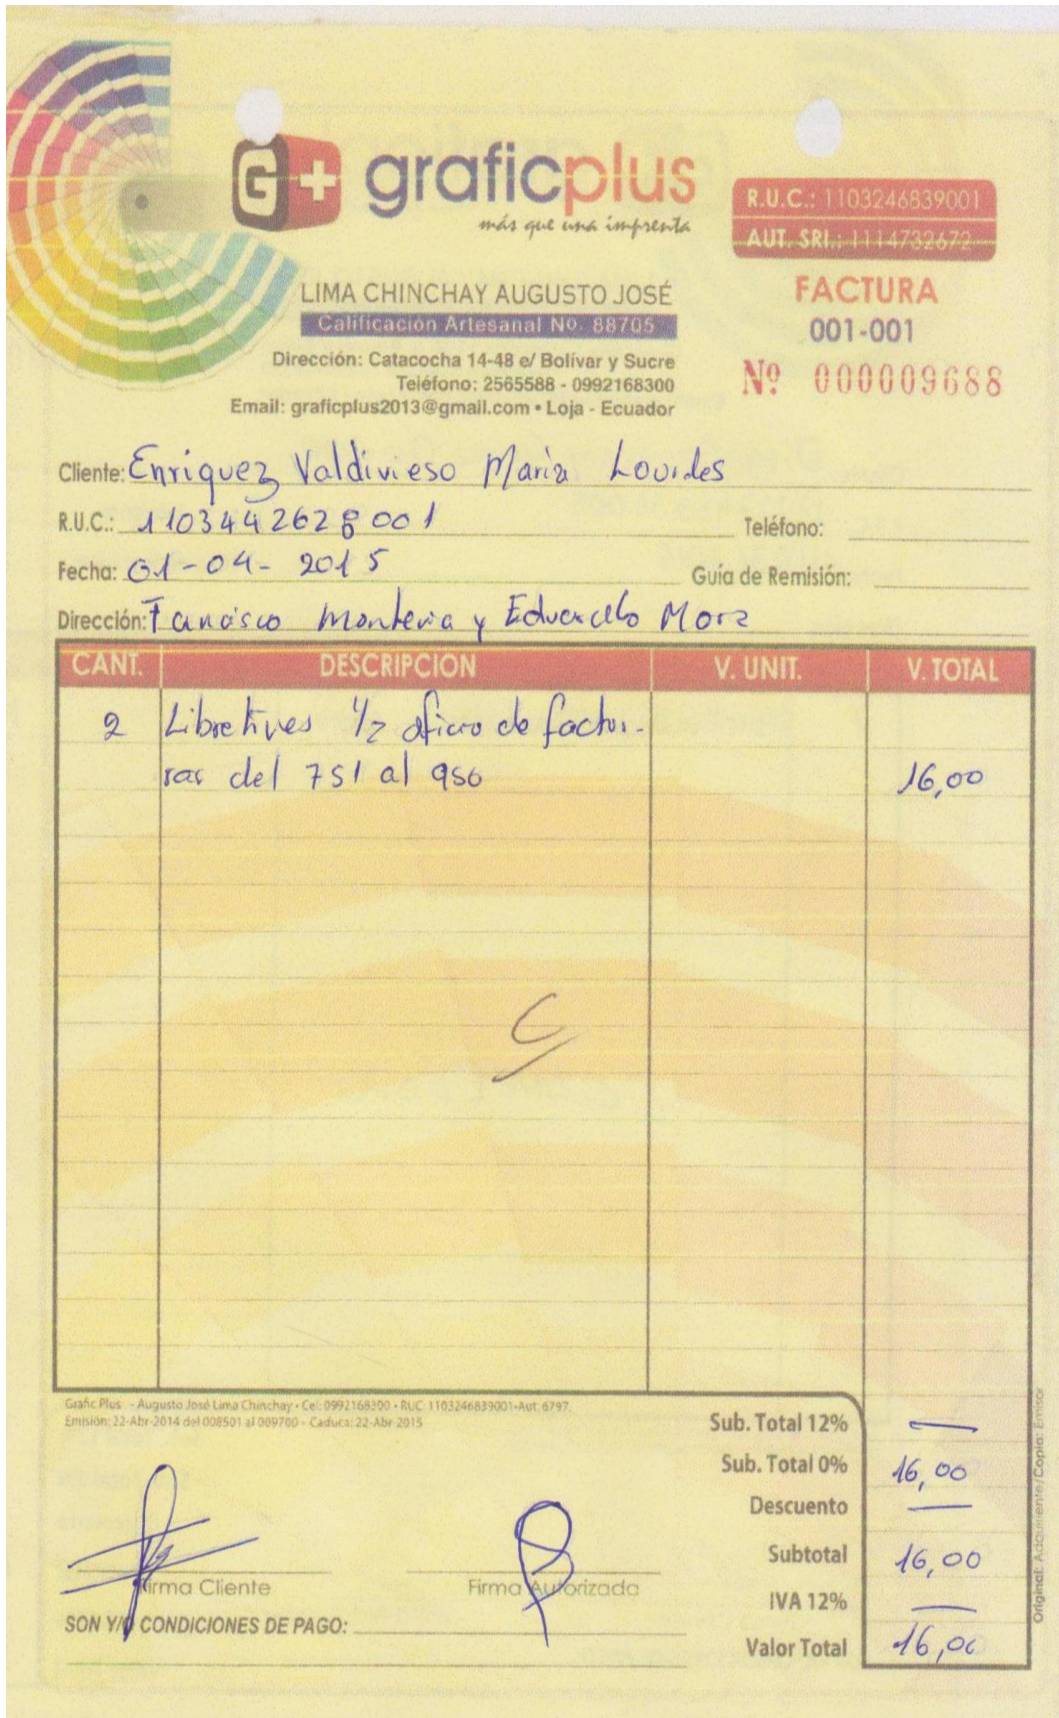 G+ graficplus
más que una imprenta
R.U.C.: 1103246839001
AUT. SRI.: 1114732672
LIMA CHINCHAY AUGUSTO JOSÉ
Calificación Artesanal Nº 88705
FACTURA
001-001
Dirección: Catacocha 14-48 e/ Bolívar y Sucre
Teléfono: 2565588 - 0992168300
Email: graficplus2013@gmail.com • Loja - Ecuador
Nº 000009688
Cliente: Enriquez Valdivieso Maria Lourdes
R.U.C.: 1103442628001
Teléfono:
Fecha: 01-04-2015
Guía de Remisión:
Dirección: y Eduardo Mora
CANT. DESCRIPCION V. UNIT. V. TOTAL
2 1/2 oficio de factu-
ras del 751 al 950 16,00
Grafic Plus - Augusto José Lima Chinchay • Cel: 0992168300 • RUC 1103246839001-Aut. 6797.
Emisión: 22-Abr-2014 del 008501 al 009700 - Caduca: 22-Abr-2015
Sub. Total 12% —
Sub. Total 0% 16,00
Descuento —
Subtotal 16,00
IVA 12% —
Valor Total 16,00
Firma Cliente
Firma Autorizada
SON Y/O CONDICIONES DE PAGO:
Original: Adquiriente/Copia: Emisor